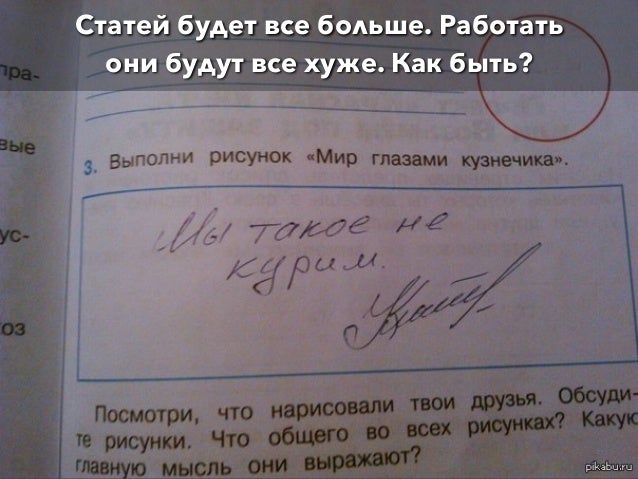 Статей будет все больше. Работать
они будут все хуже. Как быть?
пра-
вые
3. Выполни рисунок «Мир глазами кузнечика».
ус-
Мы такое не
курим.
оз
Посмотри, что нарисовали твои друзья. Обсуди-
те рисунки. Что общего во всех рисунках? Какую
главную мысль они выражают?
pikabu.ru